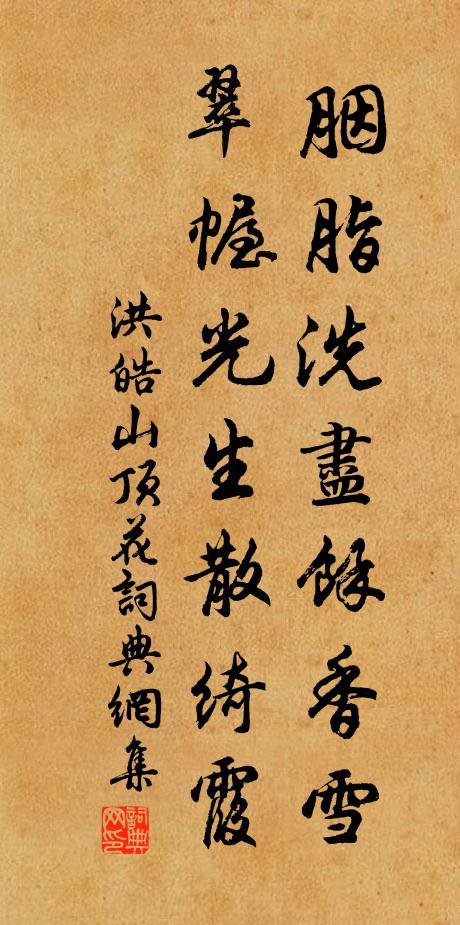 胭脂洗盡餘香雪
翠幄光生散綺霞
洪皓山顶花詞典網集
詞典网印